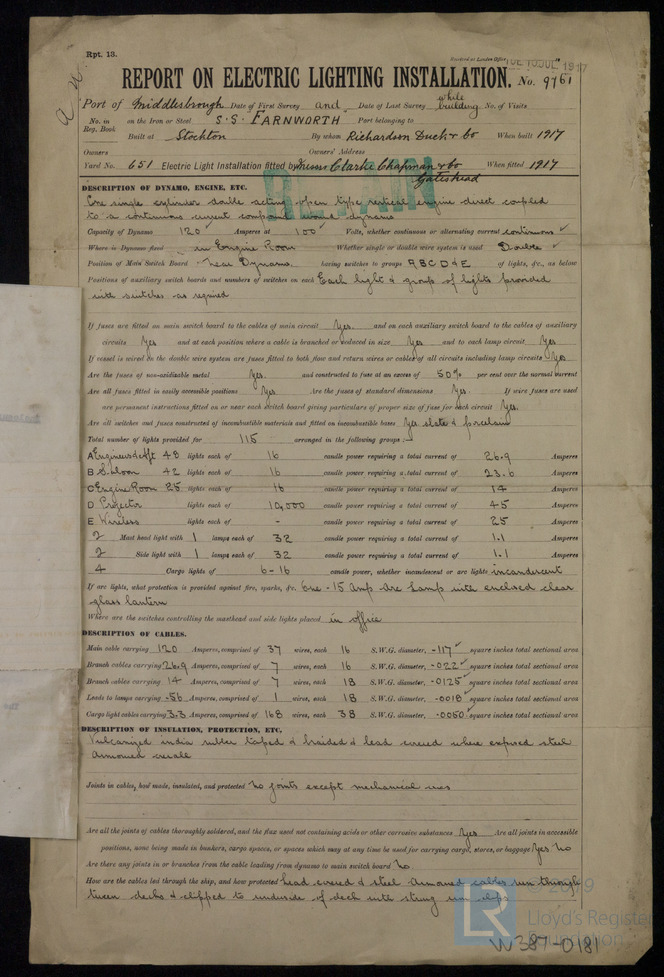 Rpt. 13.
Received at London Office
TUE 10 JUL 1917
REPORT ON ELECTRIC LIGHTING INSTALLATION. No. 9761
Port of Middlesbrough Date of First Survey and Date of Last Survey while building No. of Visits
No. in Reg. Book on the Iron or Steel S.S. FARNWORTH Port belonging to
Built at Stockton By whom Richardson Duck & Co When built 1917
Owners Owners' Address
Yard No. 651 Electric Light Installation fitted by Messrs Clarke Chapman & Co Gateshead When fitted 1917
RETAIN
DESCRIPTION OF DYNAMO, ENGINE, ETC.
One single cylinder double acting open type vertical engine direct coupled
to a continuous current compound wound dynamo
Capacity of Dynamo 120 Amperes at 100 Volts, whether continuous or alternating current continuous
Where is Dynamo fixed in Engine Room Whether single or double wire system is used Double
Position of Main Switch Board near Dynamo having switches to groups A B C D & E of lights, &c., as below
Positions of auxiliary switch boards and numbers of switches on each Each light & group of lights provided
with switches as required
If fuses are fitted on main switch board to the cables of main circuit Yes and on each auxiliary switch board to the cables of auxiliary
circuits Yes and at each position where a cable is branched or reduced in size Yes and to each lamp circuit Yes
If vessel is wired on the double wire system are fuses fitted to both flow and return wires or cables of all circuits including lamp circuits Yes
Are the fuses of non-oxidizable metal Yes and constructed to fuse at an excess of 50% per cent over the normal current
Are all fuses fitted in easily accessible positions Yes Are the fuses of standard dimensions Yes If wire fuses are used
are permanent instructions fitted on or near each switch board giving particulars of proper size of fuse for each circuit Yes
Are all switches and fuses constructed of incombustible materials and fitted on incombustible bases Yes slate & porcelain
Total number of lights provided for 115 arranged in the following groups :—
A Engineers & Aft 48 lights each of 16 candle power requiring a total current of 26.9 Amperes
B Saloon 42 lights each of 16 candle power requiring a total current of 23.6 Amperes
C Engine Room 25 lights each of 16 candle power requiring a total current of 14 Amperes
D Projector lights each of 10,000 candle power requiring a total current of 45 Amperes
E Wireless lights each of - candle power requiring a total current of 25 Amperes
2 Mast head light with 1 lamps each of 32 candle power requiring a total current of 1.1 Amperes
2 Side light with 1 lamps each of 32 candle power requiring a total current of 1.1 Amperes
4 Cargo lights of 6-16 candle power, whether incandescent or arc lights incandescent
If arc lights, what protection is provided against fire, sparks, &c. One - 15 Amp Arc Lamp with enclosed clear
glass lantern
Where are the switches controlling the masthead and side lights placed in office
DESCRIPTION OF CABLES.
Main cable carrying 120 Amperes, comprised of 37 wires, each 16 S.W.G. diameter, .117 square inches total sectional area
Branch cables carrying 26.9 Amperes, comprised of 7 wires, each 16 S.W.G. diameter, .022 square inches total sectional area
Branch cables carrying 14 Amperes, comprised of 7 wires, each 18 S.W.G. diameter, .0125 square inches total sectional area
Leads to lamps carrying .56 Amperes, comprised of 1 wires, each 18 S.W.G. diameter, .0018 square inches total sectional area
Cargo light cables carrying 3.3 Amperes, comprised of 168 wires, each 38 S.W.G. diameter, .0050 square inches total sectional area
DESCRIPTION OF INSULATION, PROTECTION, ETC.
Vulcanized india rubber taped & braided & lead covered where exposed steel
armoured overall
Joints in cables, how made, insulated, and protected No joints except mechanical ones
Are all the joints of cables thoroughly soldered, and the flux used not containing acids or other corrosive substances Yes Are all joints in accessible
positions, none being made in bunkers, cargo spaces, or spaces which may at any time be used for carrying cargo, stores, or baggage Yes No
Are there any joints in or branches from the cable leading from dynamo to main switch board No
How are the cables led through the ship, and how protected Lead covered & steel armoured cables run through
tween decks & clipped to underside of deck with strong iron clips
© 2019
Lloyd's Register
Foundation
LR
W387-0181